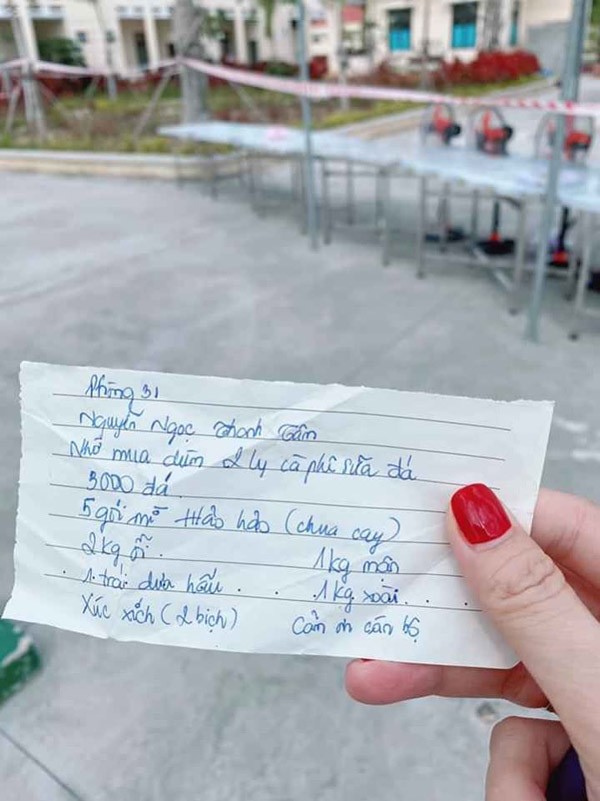 Phòng 31
Nguyễn Ngọc Thanh Tâm
Nhờ mua dùm 2 ly cà phê sữa đá
3000 đá
5 gói mì Hảo hảo (chua cay)
2kg ổi. 1kg mận
1 trái dưa hấu 1kg xoài
Xúc xích (2 bịch) Cảm ơn cán bộ